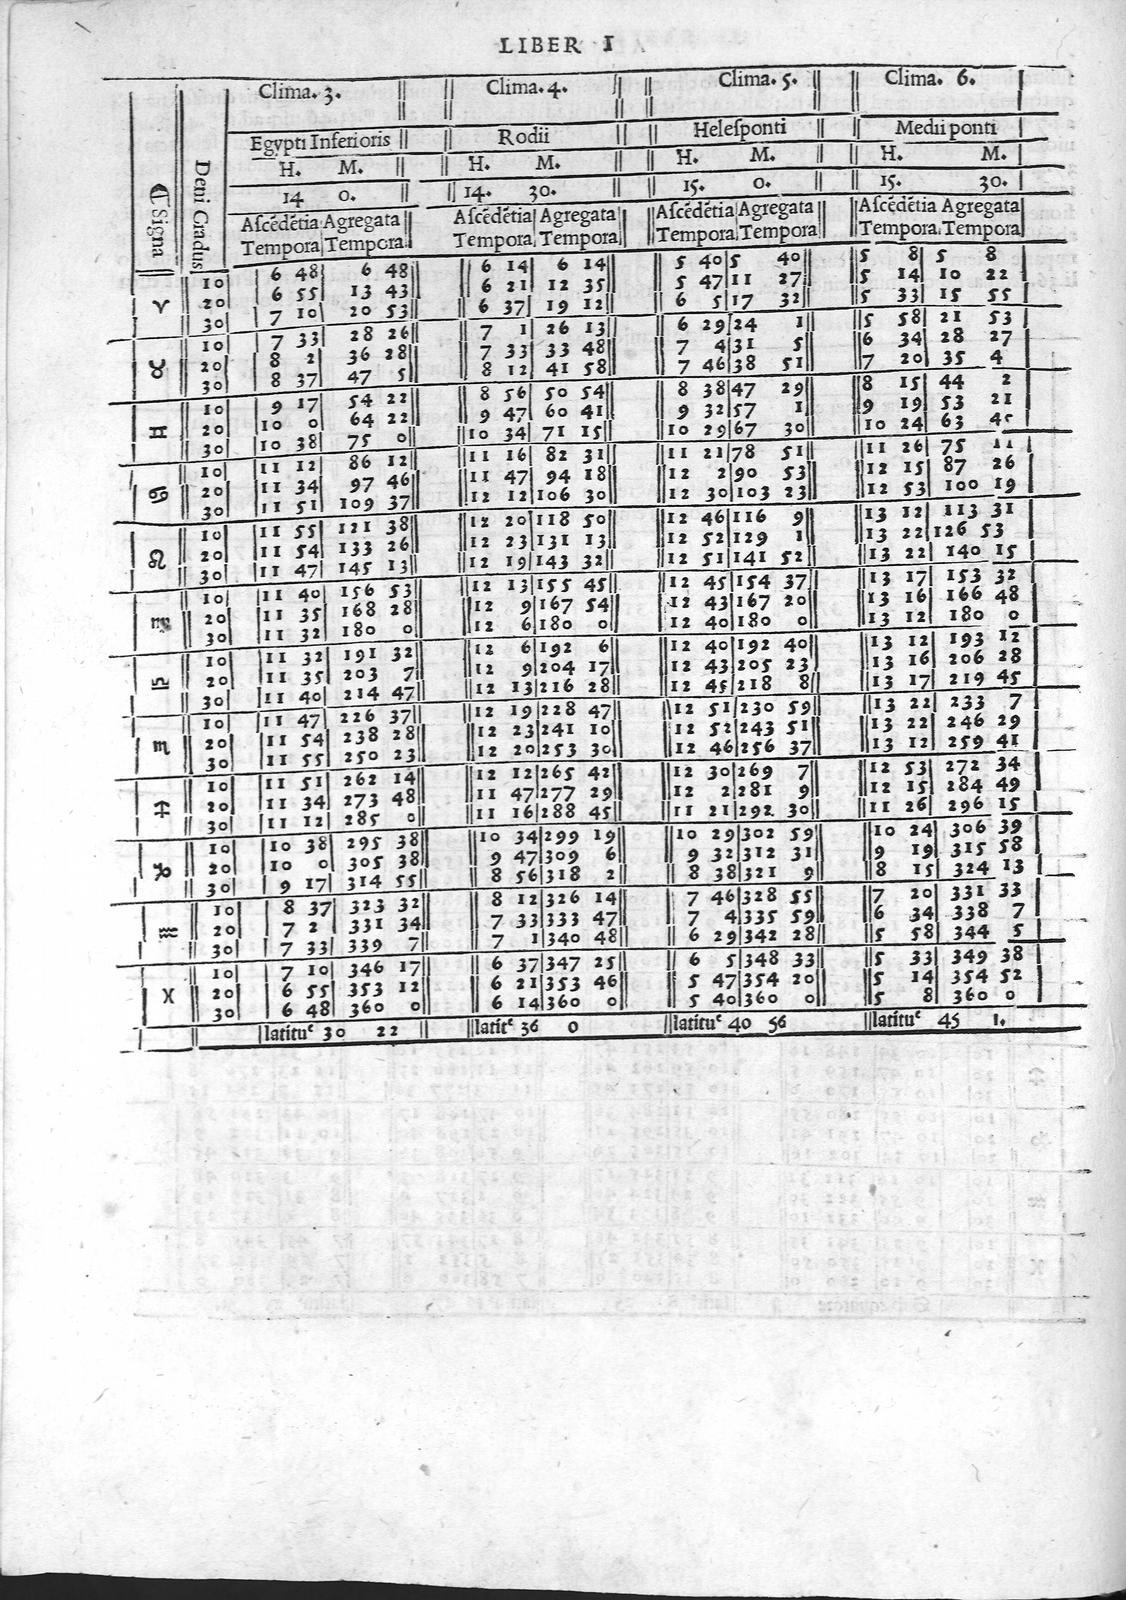 LIBER I
Clima. 3. Clima. 4. Clima. 5. Clima. 6.
Egypti Inferioris Rodii Helesponti Medii ponti
H. M. H. M. H. M. H. M.
14 0. 14. 30. 15. 0. 15. 30.
Signa Deni Gradus Ascēdētia Agregata Ascēdētia Agregata Ascēdētia Agregata Ascēdētia Agregata
Tempora Tempora Tempora Tempora Tempora Tempora Tempora Tempora
♈ 10 6 48 6 48 6 14 6 14 5 40 5 40 5 8 5 8
20 6 55 13 43 6 21 12 35 5 47 11 27 5 14 10 22
30 7 10 20 53 6 37 19 12 6 5 17 32 5 33 15 55
♉ 10 7 33 28 26 7 1 26 13 6 29 24 1 5 58 21 53
20 8 2 36 28 7 33 33 48 7 4 31 5 6 34 28 27
30 8 37 47 5 8 12 41 58 7 46 38 51 7 20 35 4
♊ 10 9 17 54 22 8 56 50 54 8 38 47 29 8 15 44 2
20 10 0 64 22 9 47 60 41 9 32 57 1 9 19 53 21
30 10 38 75 0 10 34 71 15 10 29 67 30 10 24 63 45
♋ 10 11 12 86 12 11 16 82 31 11 21 78 51 11 26 75 11
20 11 34 97 46 11 47 94 18 12 2 90 53 12 15 87 26
30 11 51 109 37 12 12 106 30 12 30 103 23 12 53 100 19
♌ 10 11 55 121 38 12 20 118 50 12 46 116 9 13 12 113 31
20 11 54 133 26 12 23 131 13 12 52 129 1 13 22 126 53
30 11 47 145 13 12 19 143 32 12 51 141 52 13 22 140 15
♍ 10 11 40 156 53 12 13 155 45 12 45 154 37 13 17 153 32
20 11 35 168 28 12 9 167 54 12 43 167 20 13 16 166 48
30 11 32 180 0 12 6 180 0 12 40 180 0 13 12 180 0
♎ 10 11 32 191 32 12 6 192 6 12 40 192 40 13 12 193 12
20 11 35 203 7 12 9 204 17 12 43 205 23 13 16 206 28
30 11 40 214 47 12 13 216 28 12 45 218 8 13 17 219 45
♏ 10 11 47 226 37 12 19 228 47 12 51 230 59 13 22 233 7
20 11 54 238 28 12 23 241 10 12 52 243 51 13 22 246 29
30 11 55 250 23 12 20 253 30 12 46 256 37 13 12 259 41
♐ 10 11 51 262 14 12 12 265 42 12 30 269 7 12 53 272 34
20 11 34 273 48 11 47 277 29 12 2 281 9 12 15 284 49
30 11 12 285 0 11 16 288 45 11 21 292 30 11 26 296 15
♑ 10 10 38 295 38 10 34 299 19 10 29 302 59 10 24 306 39
20 10 0 305 38 9 47 309 6 9 32 312 31 9 19 315 58
30 9 17 314 55 8 56 318 2 8 38 321 9 8 15 324 13
♒ 10 8 37 323 32 8 12 326 14 7 46 328 55 7 20 331 33
20 7 2 331 34 7 33 333 47 7 4 335 59 6 34 338 7
30 7 33 339 7 7 1 340 48 6 29 342 28 5 58 344 5
♓ 10 7 10 346 17 6 37 347 25 6 5 348 33 5 33 349 38
20 6 55 353 12 6 21 353 46 5 47 354 20 5 14 354 52
30 6 48 360 0 6 14 360 0 5 40 360 0 5 8 360 0
latituᵉ 30 22 latitᵉ 36 0 latituᵉ 40 56 latituᵉ 45 1.